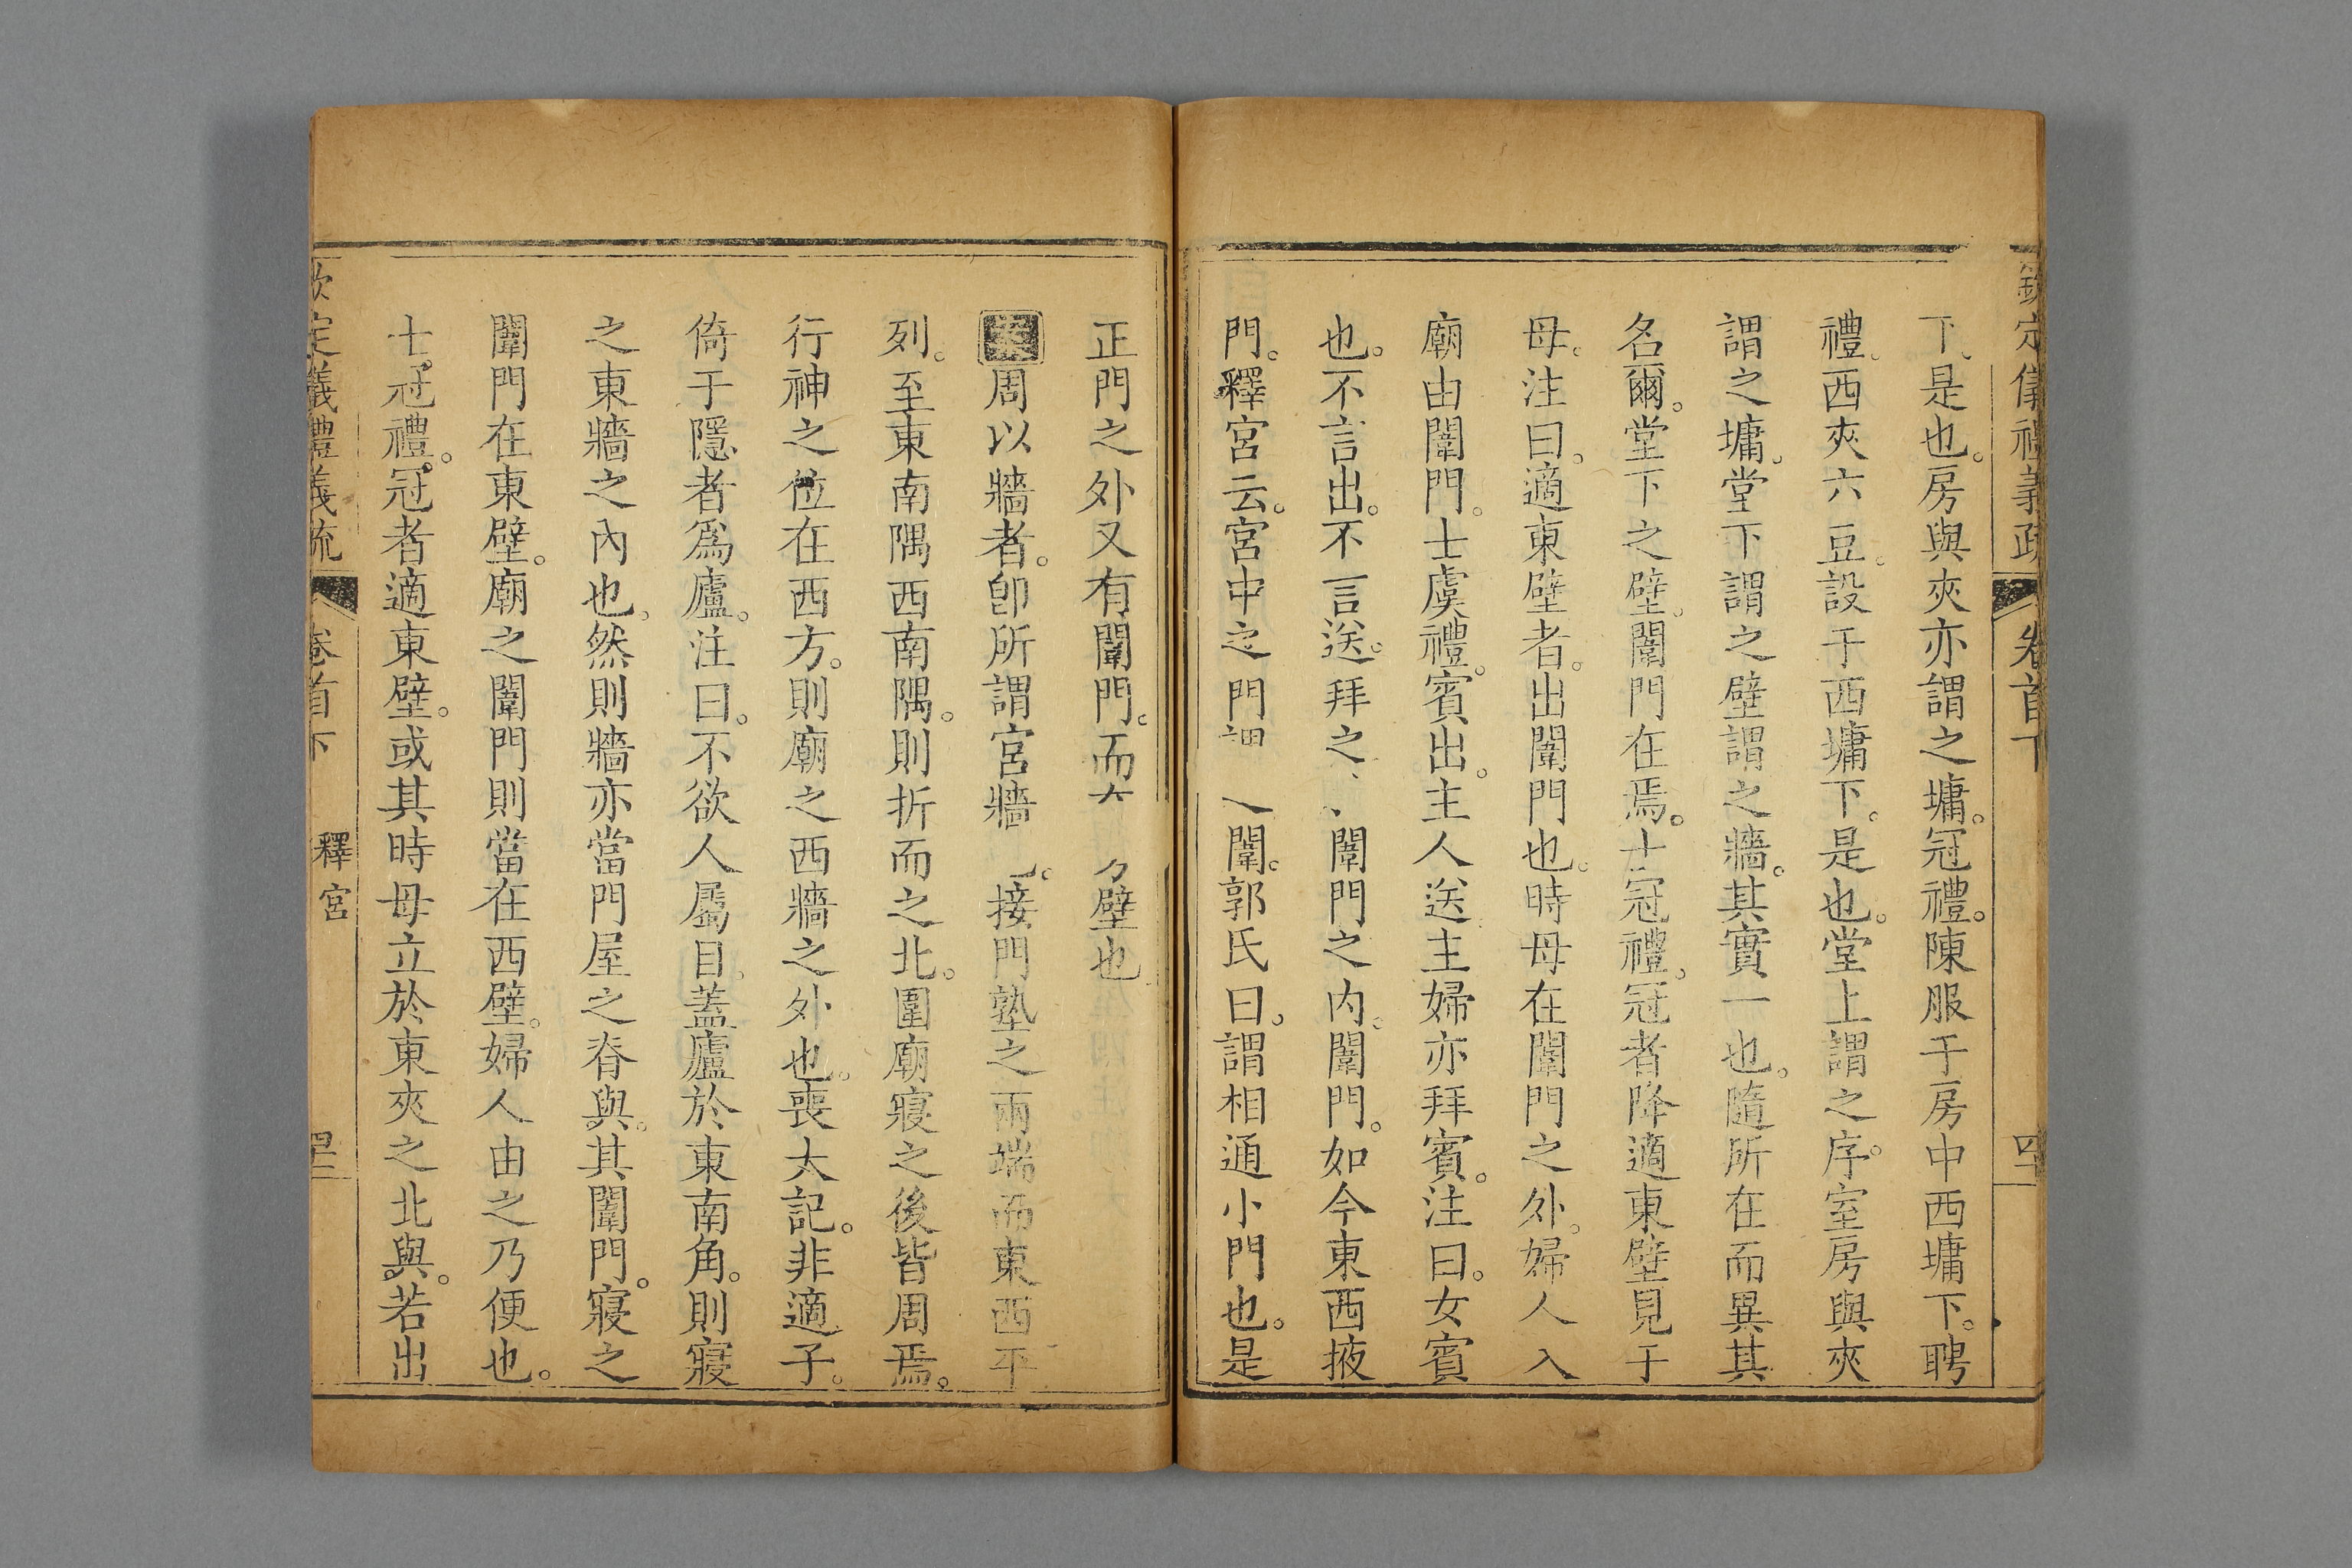 欽定儀禮義疏 卷首下 四
下是也。房與夾亦謂之墉。冠禮。陳服于房中西墉下。聘
禮。西夾六豆。設于西墉下。是也。堂上謂之序。室房與夾
謂之墉。堂下謂之壁。謂之牆。其實一也。隨所在而異其
名爾。堂下之壁。闈門在焉。士冠禮。冠者降適東壁見于
母。注曰。適東壁者。出闈門也。時母在闈門之外。婦人入
廟由闈門。士虞禮。賓出。主人送。主婦亦拜賓。注曰。女賓
也。不言出。不言送。拜之 闈門之内。闈門。如今東西掖
門。釋宮云。宮中之門謂 闈。郭氏曰。謂相通小門也。是
正門之外又有闈門。而 壁也
案周以牆者。卽所謂宮牆 接門塾之兩端而東西平
列。至東南隅西南隅。則折而之北。圍廟寢之後皆周焉。
行神之位在西方。則廟之西牆之外也。喪大記。非適子。
倚于隱者爲廬。注曰。不欲人屬目。蓋廬於東南角。則寢
之東牆之內也。然則牆亦當門屋之脊與。其闈門。寢之
闈門在東壁。廟之闈門則當在西壁。婦人由之乃便也。
士。冠禮。冠者適東壁。或其時母立於東夾之北與。若出
欽定儀禮義疏 卷首下 釋宮